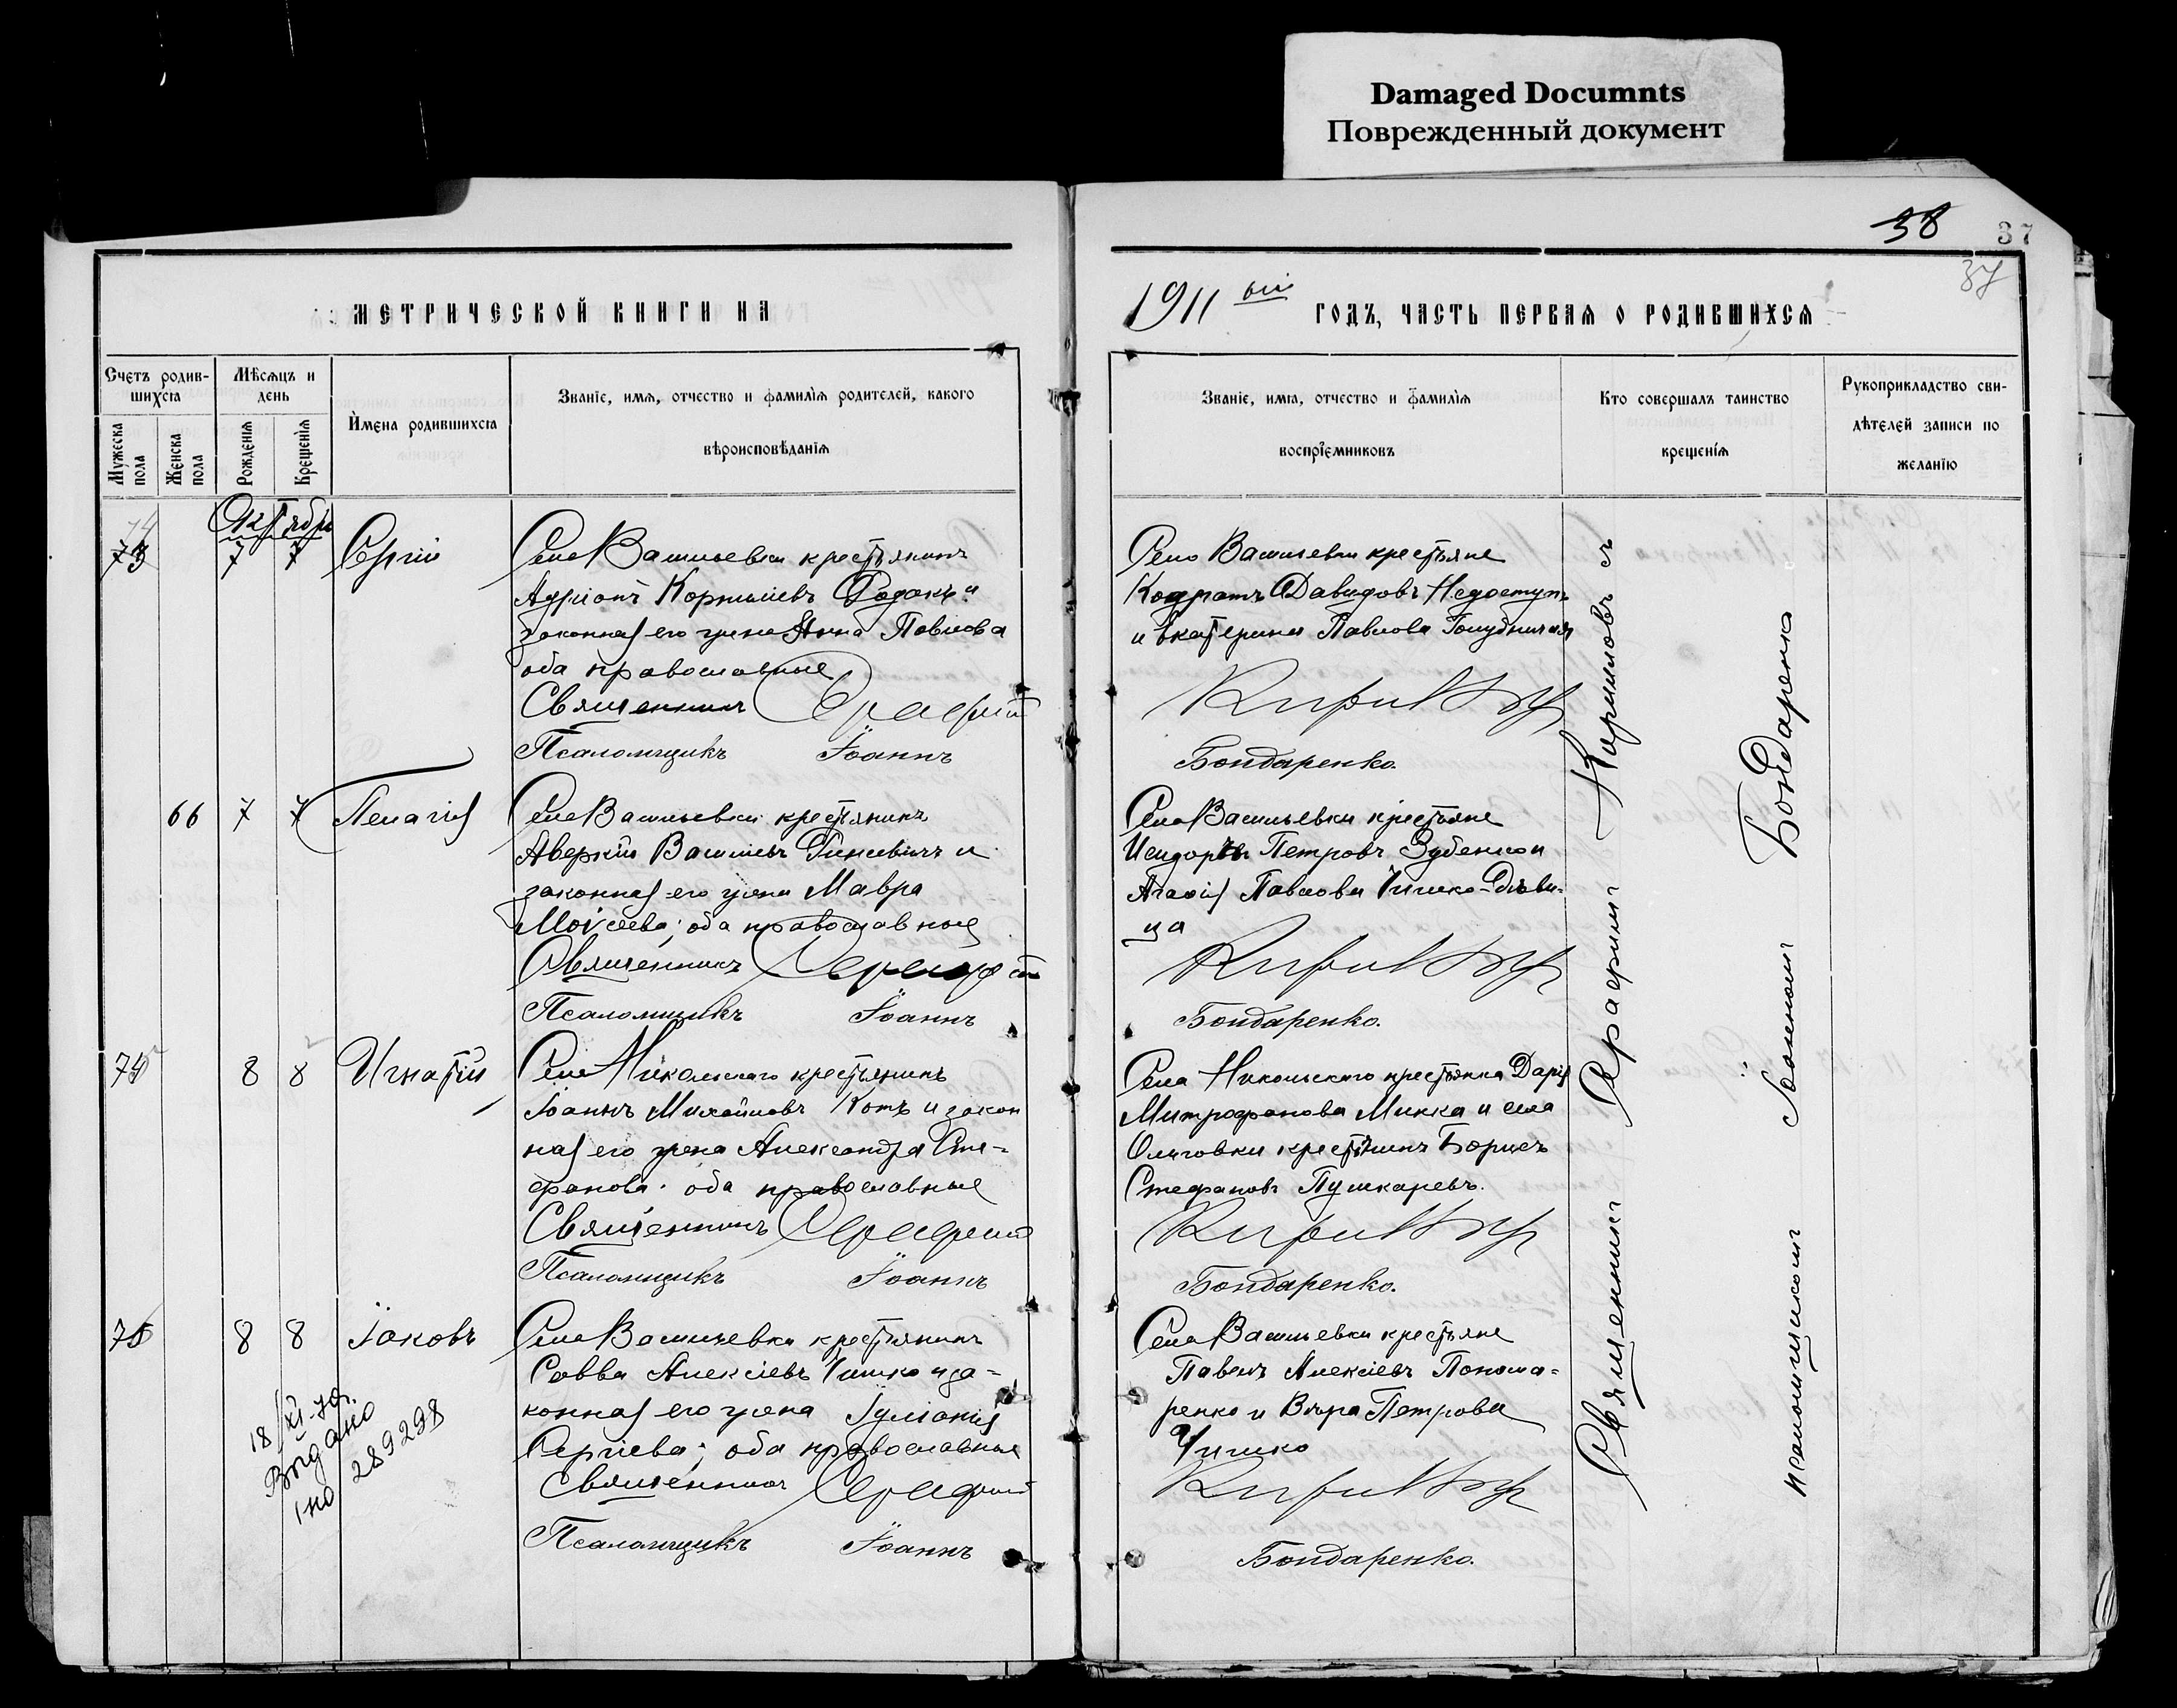 Damaged Documnts
Поврежденный документ
38
37
37
МЕТРИЧЕСКОЙ КНИГИ НА
1911 ый ГОДЪ, ЧАСТЬ ПЕРВАЯ О РОДИВШИХСЯ
Счетъ родив-
шихся
Мужеска пола
Женска пола
Мѣсяцъ и
день
Рожденія
Крещенія
Имена родившихся
Званіе, имя, отчество и фамилія родителей, какого
вѣроисповѣданія
Званіе, имя, отчество и фамилія
воспріемниковъ
Кто совершалъ таинство
крещенія
Рукоприкладство сви-
дѣтелей записи по
желанію
Октябрь
7 7 Сергій
Села Васильевки крестьянинъ
Адріанъ Корниліевъ и
законная его жена Анна Павлова
оба православные
Священникъ Серафим
Псаломщикъ Іоаннъ
Села Васильевки крестьяне
Кодратъ Давидовъ Недоступ-
и Екатерина Павлова Голубничая
Кирилловъ
Бондаренко.
66 7 7 Пелагія
Села Васильевки крестьянинъ
Аверкій Васильевъ и
законная его жена Мавра
Моисеева; оба православные
Священникъ Серафим
Псаломщикъ Іоаннъ
Села Васильевки крестьяне
Исидоръ Петровъ Зубенко и
Агафія Павлова Чишко-дѣви-
ца
Кирилловъ
Бондаренко.
74 8 8 Игнатій
Села Никольскаго крестьянинъ
Іоаннъ Михайловъ Котъ и закон
ная его жена Александра Сте-
фанова; оба православные
Священникъ Серафим
Псаломщикъ Іоаннъ
Села Никольскаго крестьянка Дарія
Митрофанова Микка и села
Ольговки крестьянинъ Борисъ
Стефановъ Пушкаревъ.
Кирилловъ
Бондаренко.
75 8 8 Іаковъ
Села Васильевки крестьянинъ
Савва Алексіевъ Чишко и за-
конная его жена Іуліанія
Сергіева; оба православные
Священникъ Серафим
Псаломщикъ Іоаннъ
Села Васильевки крестьяне
Павелъ Алексіевъ Понома-
ренко и Вѣра Петрова
Чишко
Кирилловъ
Бондаренко.
Выдано
289298
Священникъ Серафимъ Кирилловъ съ
псаломщикомъ Іоанномъ Бондаренко